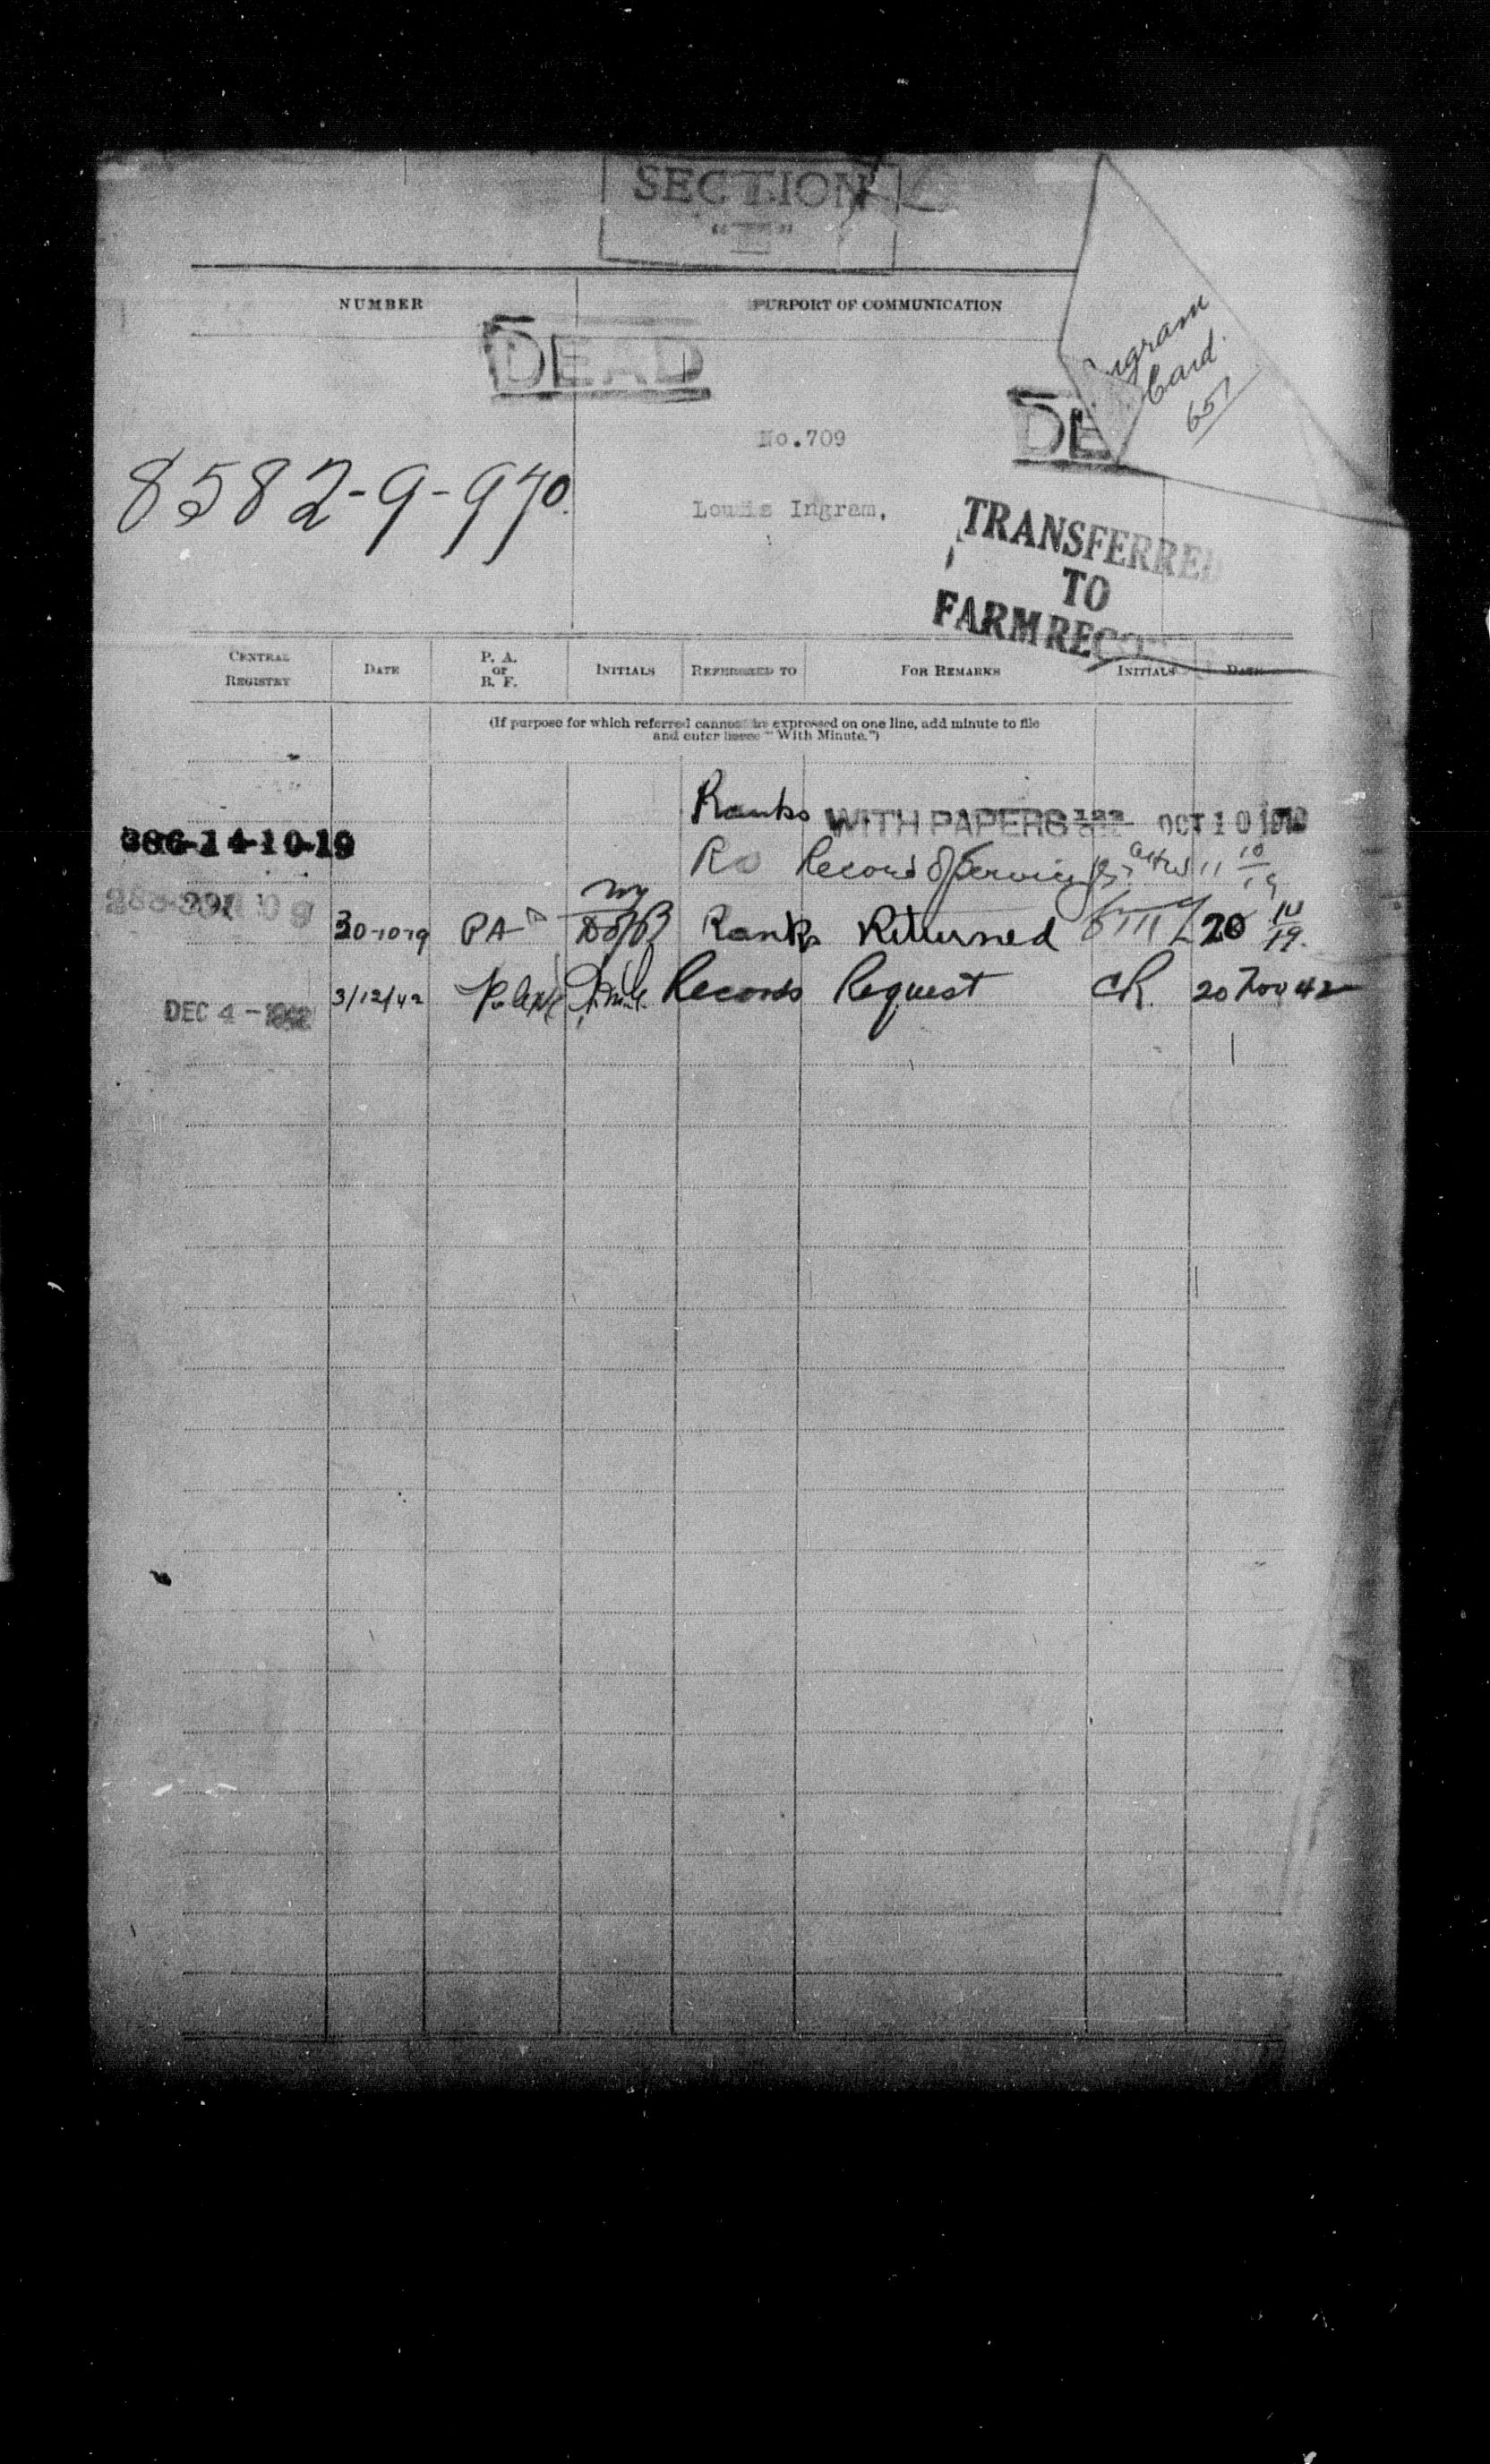 SECTION
NUMBER PURPORT OF COMMUNICATION
DEAD
Ingram
Card.
651
DE
No.709
8582-9-970.
Louis Ingram,
TRANSFERRED
TO
FARM RECO
CENTRAL REGISTRY DATE P. A. or B. F. INITIALS REFERRED TO FOR REMARKS INITIALS DATE
(If purpose for which referred cannot be expressed on one line, add minute to file
and enter here "With Minute.")
Ranks WITH PAPERS OCT 10 1919
386-14-10-19
RO Record of Service 11 10/19
30-10-19 PA Ranks Returned 20 10/19.
3/12/42 Records Request CR. 20 Nov 42
DEC 4 - 1942